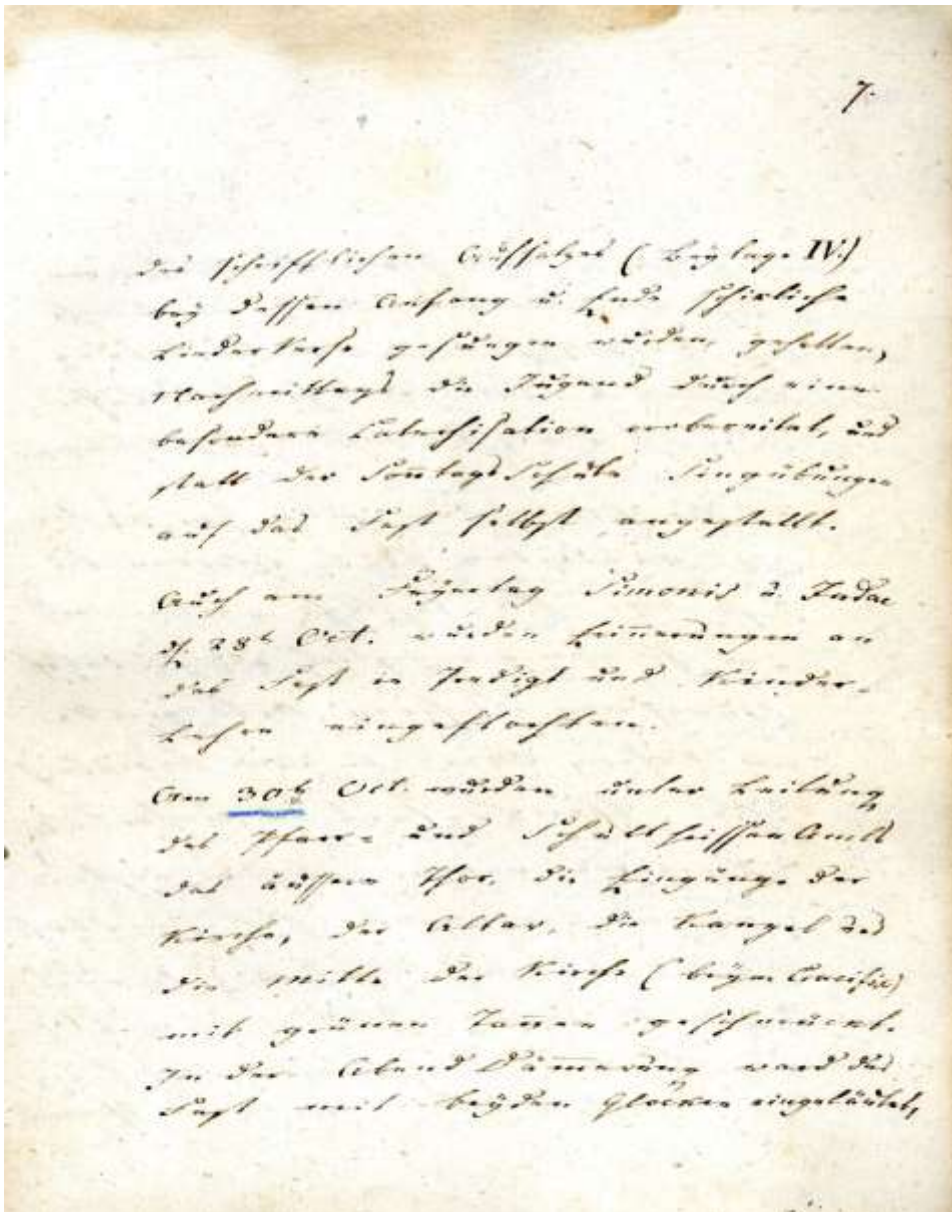 7.
des schrifftlichen Aufsatzes (Beylage IV.)
bey dessen Anfang u. Ende schikliche
Liederverse gesungen wurden, gehalten,
Nachmittags die Jugend durch eine
besondere Catechisation vorbereitet, und
statt der Sontags Schule Singübungen
auf das Fest selbst angestellt.
Auch am Feyertag Simonis u. Judae
d. 28t Oct. wurden Erinnerungen an
das Fest in Predigt und Kinder-
Lehre eingeflochten.
Am 30t Oct. wurden unter Leitung
des Pfarr- und Schultheissen Amts
das äussere Thor, die Eingänge der
Kirche, der Altar, die Kanzel und
die Mitte der Kirche (beym Crucifix)
mit grünen Tannen geschmückt.
In der Abend Dämmerung ward das
Fest mit beyden Glocken eingeläutet,